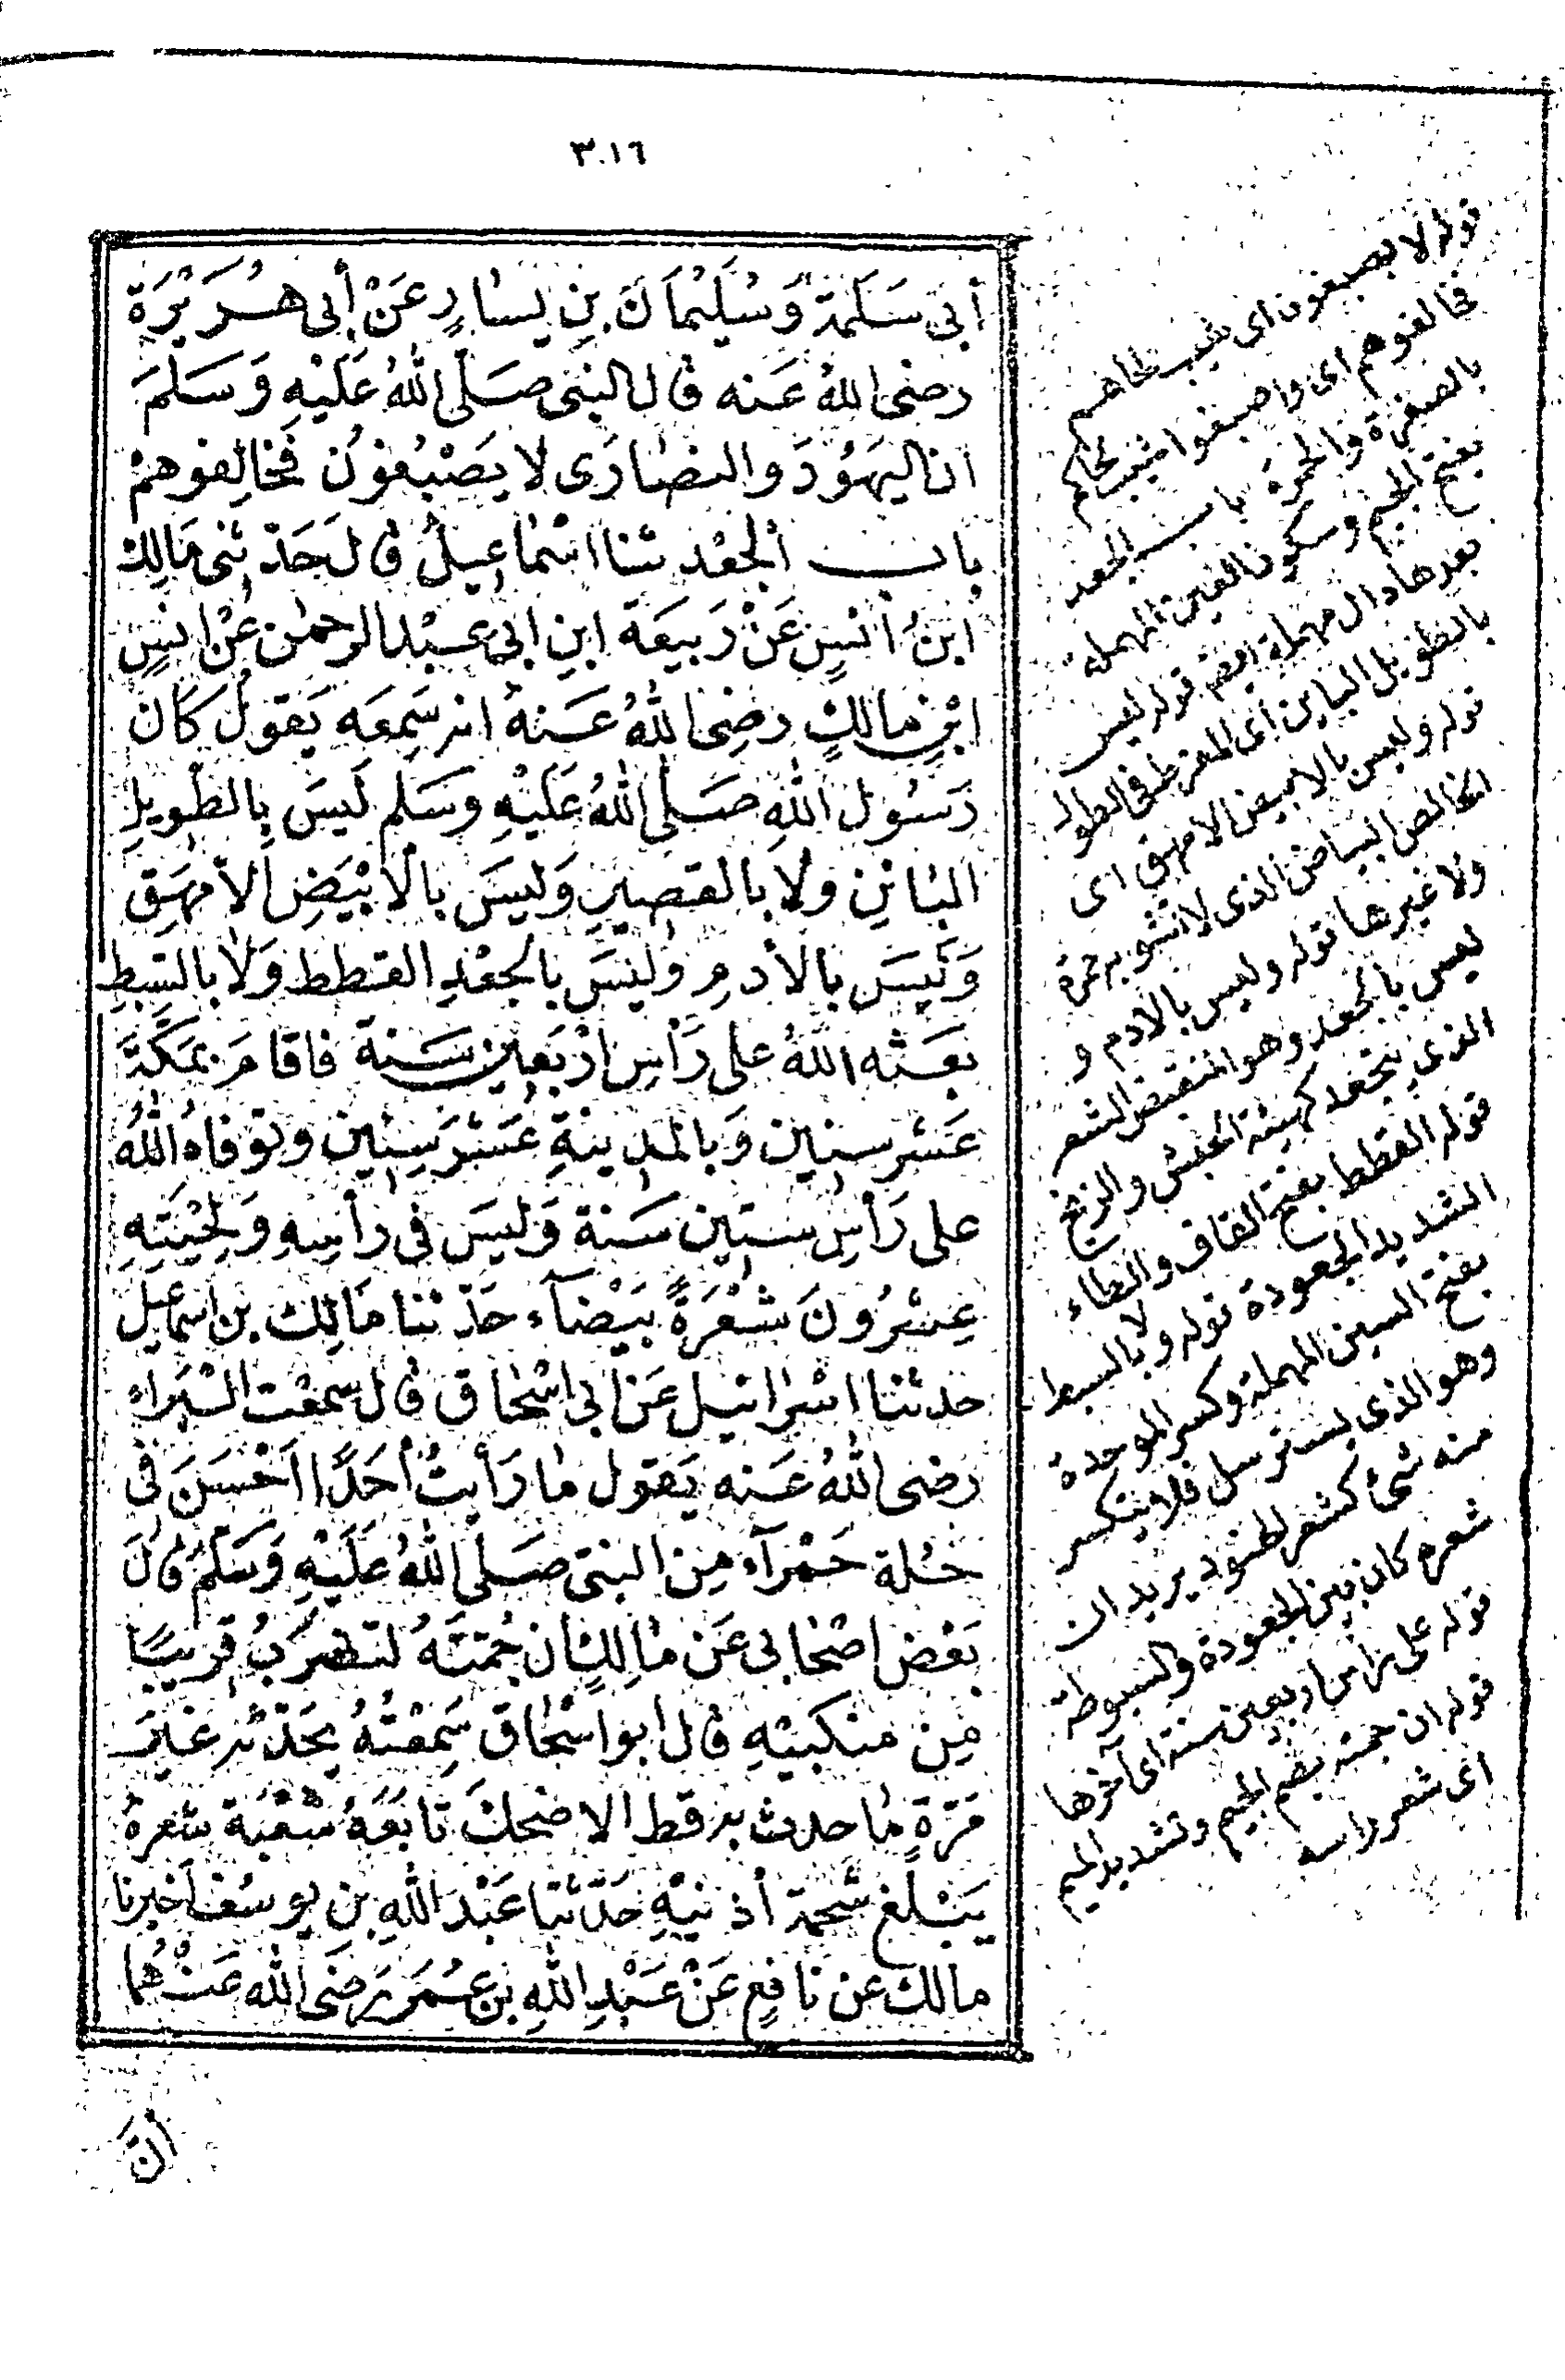 ٣٠١٦
أبى سَلَمةَ وَسُلَيْمَانَ بنِ يسارٍ عَنْ أبى هُرَيْرَةَ
رضى اللهُ عَنه قال النبى صَلَّى اللهُ عَلَيْهِ وَسَلمَ
ان اليَهُودَ والنصَارَى لا يَصْبُغونَ فَخالِفوهمْ
باب الجَعْد ثنا اسْماعِيلُ قالَ حَدّثنى مَالِكُ
ابنُ انسٍ عَنْ رَبيعَة ابنِ ابى عَبْد الرحمٰن عَنْ انَسٍ
ابْنِ مالكٍ رضِىَ اللهُ عَنهُ انه سَمِعَه يَقولُ كَانَ
رَسُول اللهِ صَلى اللهُ عَلَيْهِ وسَلم لَيسَ بِالطّويلِ
البَائنِ ولا بالقصيرِ وَليسَ بالأبْيَضِ الأمْهَقِ
وَلَيسَ بالأدمِ وليْسَ بالجعْدِ القطط وَلا بالسَّبطِ
بَعَثه اللهُ على رَأسِ ارْبَعِين سَنة فاقامَ بمَكَّةَ
عَشر سنين وَبالمدينةِ عَشرَ سِنِين وتوفاهُ اللهُ
على رَأسِ ستين سَنة وَليسَ فى رأسِهِ وَلِحْيَتِهِ
عِشرُونَ شعْرَةً بَيْضآء حَدّثنا مَالِك بن اسماعيل
حدثنا اسْرائيل عَن ابى اسْحاق قال سمعْت البَراءَ
رضى اللهُ عَنه يَقول ما رَأيتُ أحَدًا احْسَنَ فى
حُلة حَمْرآء مِن النبى صَلى اللهُ عَلَيْهِ وَسَلمَ قال
بَعْض اصْحابى عَن مَالِكٍ ان جُمتَهُ لتضربُ قريبًا
مِن منكبيْهِ قال ابو اسْحاق سَمِعْتُهُ يحَدّثه غيرَ
مَرّةٍ ما حدث به قط الا ضحكَ تابَعَهُ شعْبَة شعرهُ
يَبْلغ شحمة أذنيْهِ حَدّثنا عَبْد اللهِ بنِ يوسُف اخبرنا
مالك عن نافِعٍ عَنْ عَبْدِ اللهِ بن عُمَرَ رَضىَ الله عَنْهُما
أنَّ
قوله لا يصبغون اى شيب لحاهم
فخالفوهم اى واصبغوا شيب لحاكم
بالصفرة والحمرة باب الجعد
بفتح الجيم وسكون العين المهملة
بعدها دال مهملة قوله ليس
بالطويل الباين أى المفرط فى الطول
قوله وليس بالابيض الامهق اى
الخالص البياض الذى لا تشوبه حمرة
ولا غيرها قوله وليس بالادم و
ليس بالجعد وهو المنقبض الشعر
الذى يتجعد كهيئة الحبش والزنج
قوله القطط بفتح القاف والطاء
الشديد الجعودة قوله ولا بالسبط
بفتح السين المهملة وكسر الموحدة
وهو الذى يسترسل فلا ينكسر
منه شئ كشعر الهنود يريد ان
شعره كان بين الجعودة والسبوطة
قوله على رأس اربعين سنة اى آخرها
قوله ان جمته بضم الجيم وتشديد الميم
أى شعر راسه